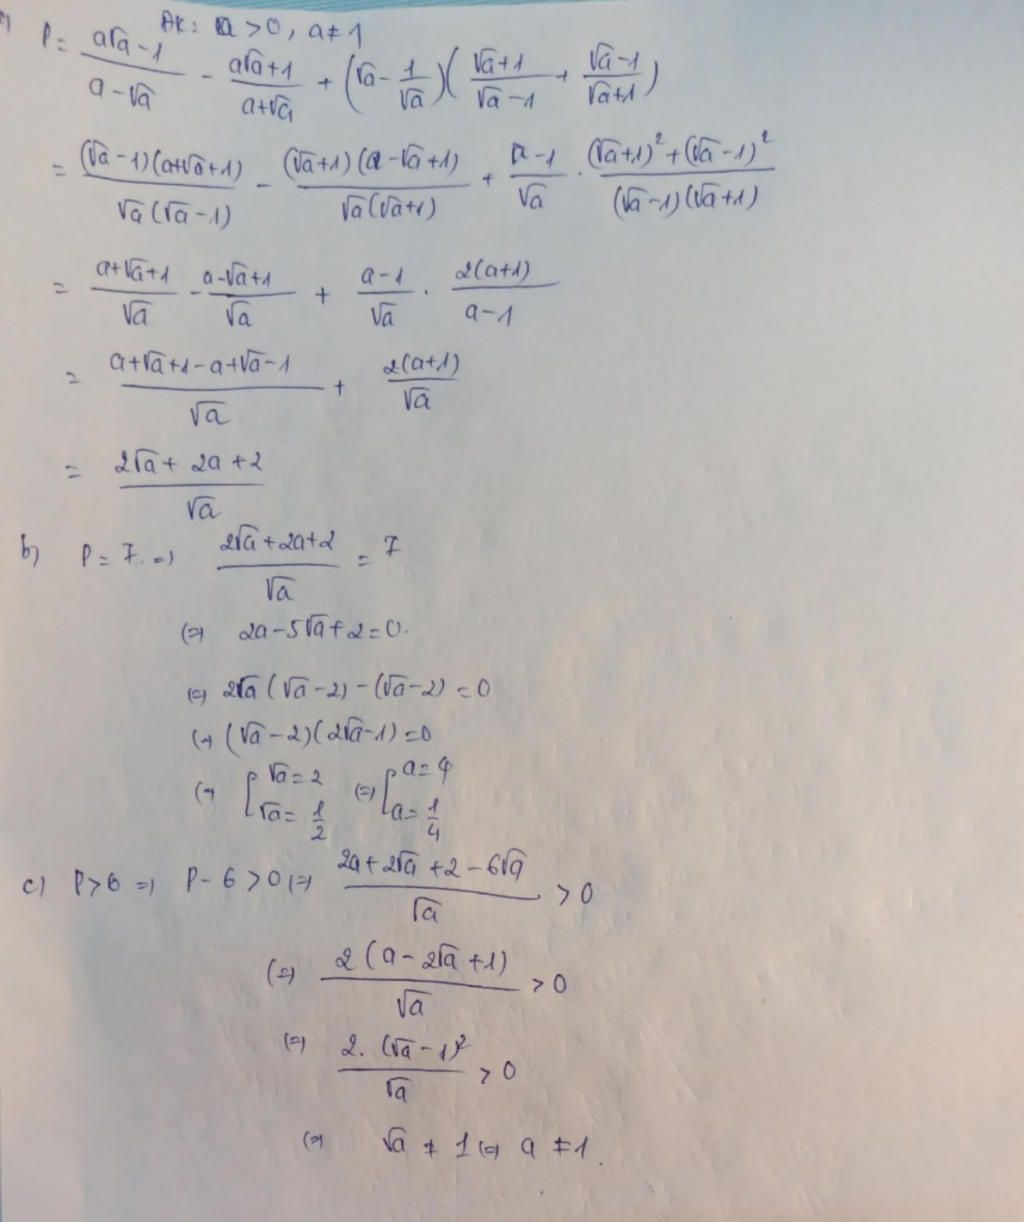 a) ĐK: a > 0, a ≠ 1
P = (a√a - 1)/(a - √a) - (a√a + 1)/(a + √a) + (√a - 1/√a)((√a + 1)/(√a - 1) + (√a - 1)/(√a + 1))
= (√a - 1)(a + √a + 1)/(√a(√a - 1)) - (√a + 1)(a - √a + 1)/(√a(√a + 1)) + (a - 1)/√a . ((√a + 1)² + (√a - 1)²)/((√a - 1)(√a + 1))
= (a + √a + 1)/√a - (a - √a + 1)/√a + (a - 1)/√a . 2(a + 1)/(a - 1)
= (a + √a + 1 - a + √a - 1)/√a + 2(a + 1)/√a
= (2√a + 2a + 2)/√a
b) P = 7 => (2√a + 2a + 2)/√a = 7
(=) 2a - 5√a + 2 = 0.
(=) 2√a(√a - 2) - (√a - 2) = 0
(=) (√a - 2)(2√a - 1) = 0
(=) [√a = 2 (=) [a = 4
√a = 1/2 a = 1/4
c) P > 6 => P - 6 > 0 (=) (2a + 2√a + 2 - 6√a)/√a > 0
(=) 2(a - 2√a + 1)/√a > 0
(=) 2.(√a - 1)²/√a > 0
(=) √a ≠ 1 (=) a ≠ 1.